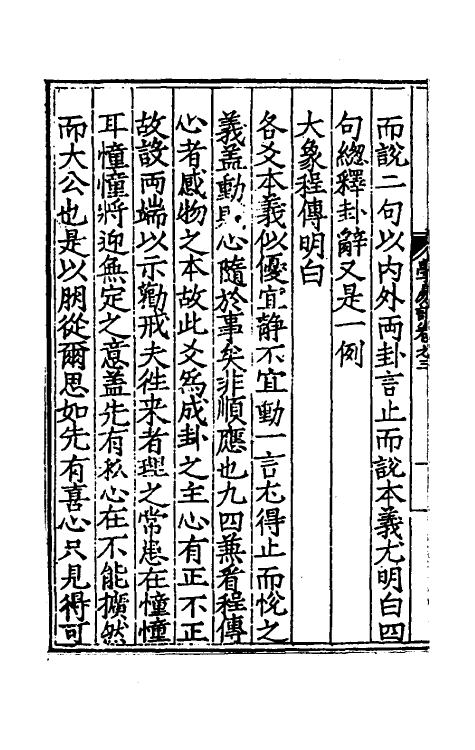 而說二句以内外兩卦言止而說本義尤明白四
句緫釋卦辭又是一例
大象程傳明白
各爻本義似優宜静不宜動一言尤得止而恱之
義盖動則心隨於事矣非順應也九四兼看程傳
心者感物之本故此爻爲成卦之主心有正不正
故設兩端以示勸戒夫徃来者理之常患在憧憧
耳憧憧將迎無定之意盖先有私心在不能擴然
而大公也是以朋從爾思如先有喜心只見得可